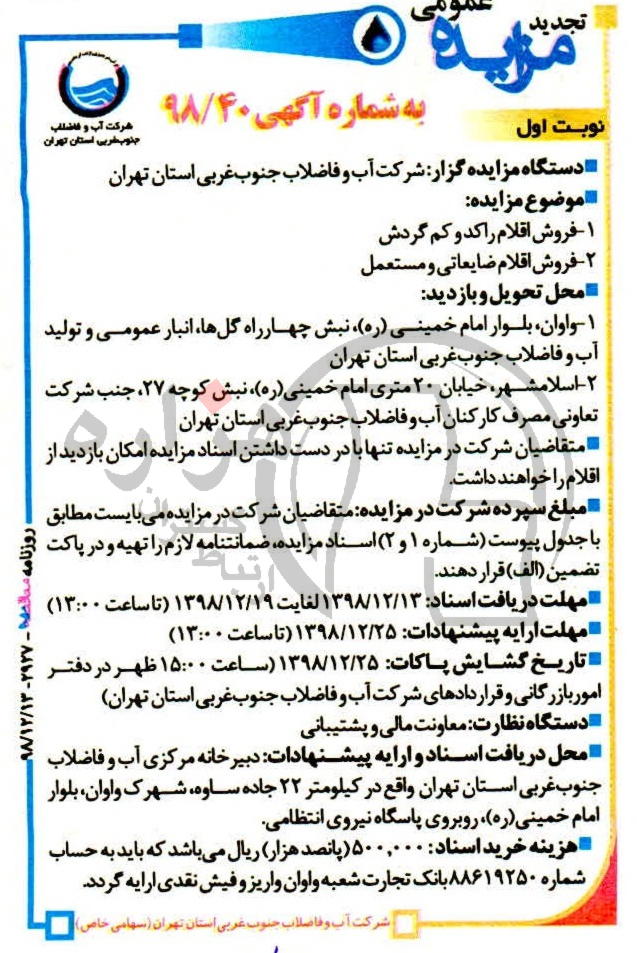 تجدید
عمومی
مزایده
به شماره آگهی ۹۸/۴۰
نوبت اول
شرکت آب و فاضلاب
جنوب‌غربی استان تهران
دستگاه مزایده گزار: شرکت آب و فاضلاب جنوب‌غربی استان تهران
موضوع مزایده:
۱-فروش اقلام راکد و کم گردش
۲-فروش اقلام ضایعاتی و مستعمل
محل تحویل و بازدید:
۱-واوان، بلوار امام خمینی (ره)، نبش چهارراه گل‌ها، انبار عمومی و تولید
آب و فاضلاب جنوب‌غربی استان تهران
۲-اسلامشهر، خیابان ۲۰ متری امام خمینی(ره)، نبش کوچه ۲۷، جنب شرکت
تعاونی مصرف کارکنان آب و فاضلاب جنوب‌غربی استان تهران
متقاضیان شرکت در مزایده تنها با در دست داشتن اسناد مزایده امکان بازدید از
اقلام را خواهند داشت.
مبلغ سپرده شرکت در مزایده: متقاضیان شرکت در مزایده می‌بایست مطابق
با جدول پیوست (شماره ۱ و ۲) اسناد مزایده، ضمانتنامه لازم را تهیه و در پاکت
تضمین (الف) قرار دهند.
مهلت دریافت اسناد: ۱۳۹۸/۱۲/۱۳ لغایت ۱۳۹۸/۱۲/۱۹ (تا ساعت ۱۳:۰۰)
مهلت ارایه پیشنهادات: ۱۳۹۸/۱۲/۲۵ (تا ساعت ۱۳:۰۰)
تاریخ گشایش پاکات: ۱۳۹۸/۱۲/۲۵ (ساعت ۱۵:۰۰ ظهر در دفتر
امور بازرگانی و قراردادهای شرکت آب و فاضلاب جنوب‌غربی استان تهران)
دستگاه نظارت: معاونت مالی و پشتیبانی
محل دریافت اسناد و ارایه پیشنهادات: دبیرخانه مرکزی آب و فاضلاب
جنوب‌غربی استان تهران واقع در کیلومتر ۲۲ جاده ساوه، شهرک واوان، بلوار
امام خمینی(ره)، روبروی پاسگاه نیروی انتظامی.
هزینه خرید اسناد: ۵۰۰,۰۰۰ (پانصد هزار) ریال می‌باشد که باید به حساب
شماره ۸۸۶۱۹۲۵۰ بانک تجارت شعبه واوان واریز و فیش نقدی ارایه گردد.
شرکت آب و فاضلاب جنوب غربی استان تهران (سهامی خاص)
روزنامه - ۲۹۲۷ - ۹۸/۱۲/۱۳
هزاره
ارتباط گستران